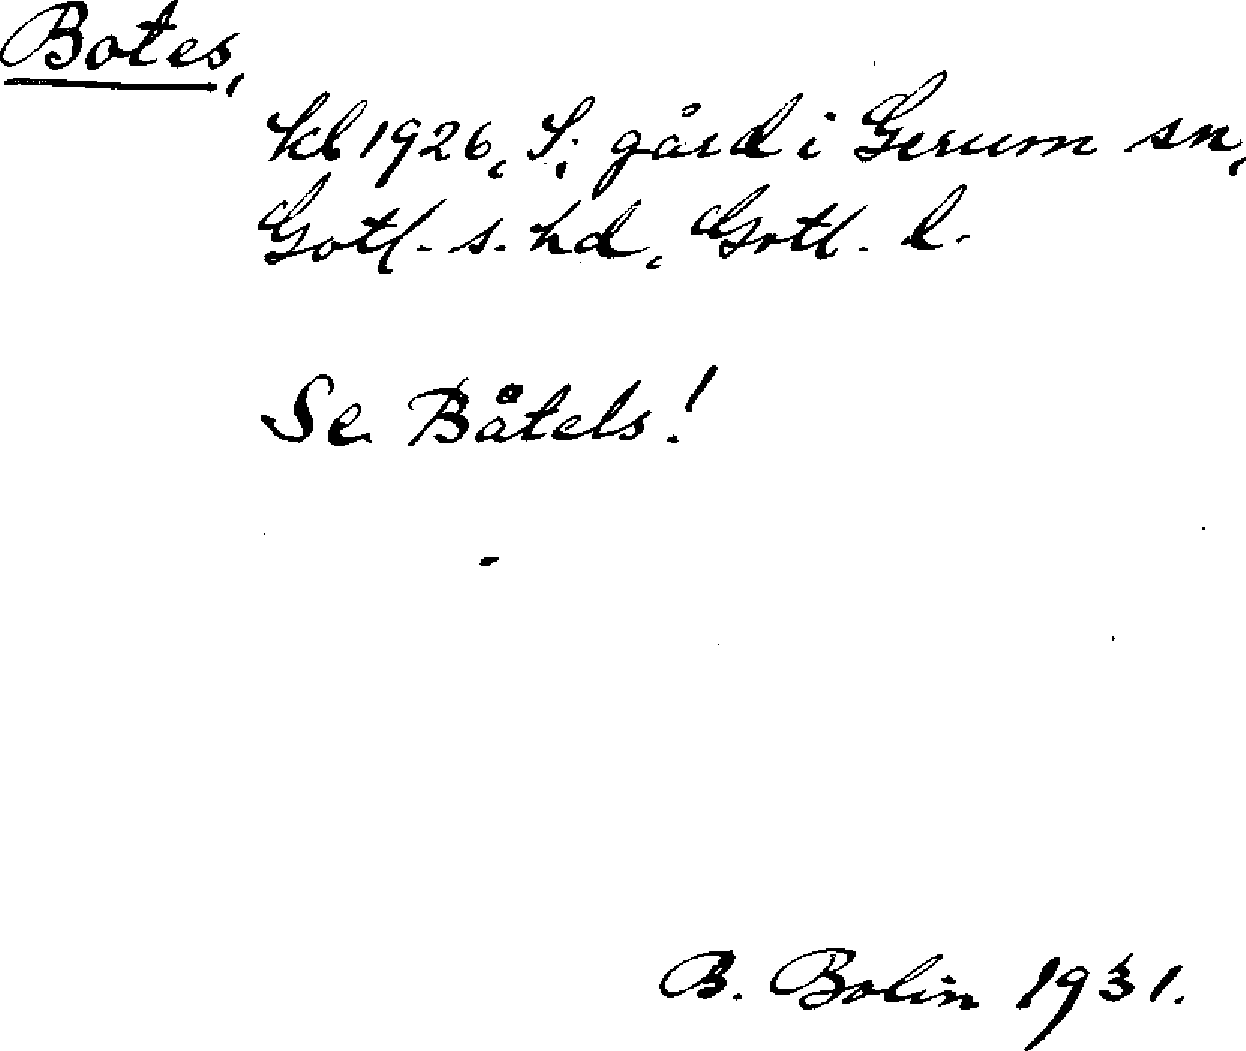 Botes,
kb 1926, S; gård i Gerum sn,
Gotl. s. hd, Gotl. l.
Se Båtels!
B. Bolin 1931.